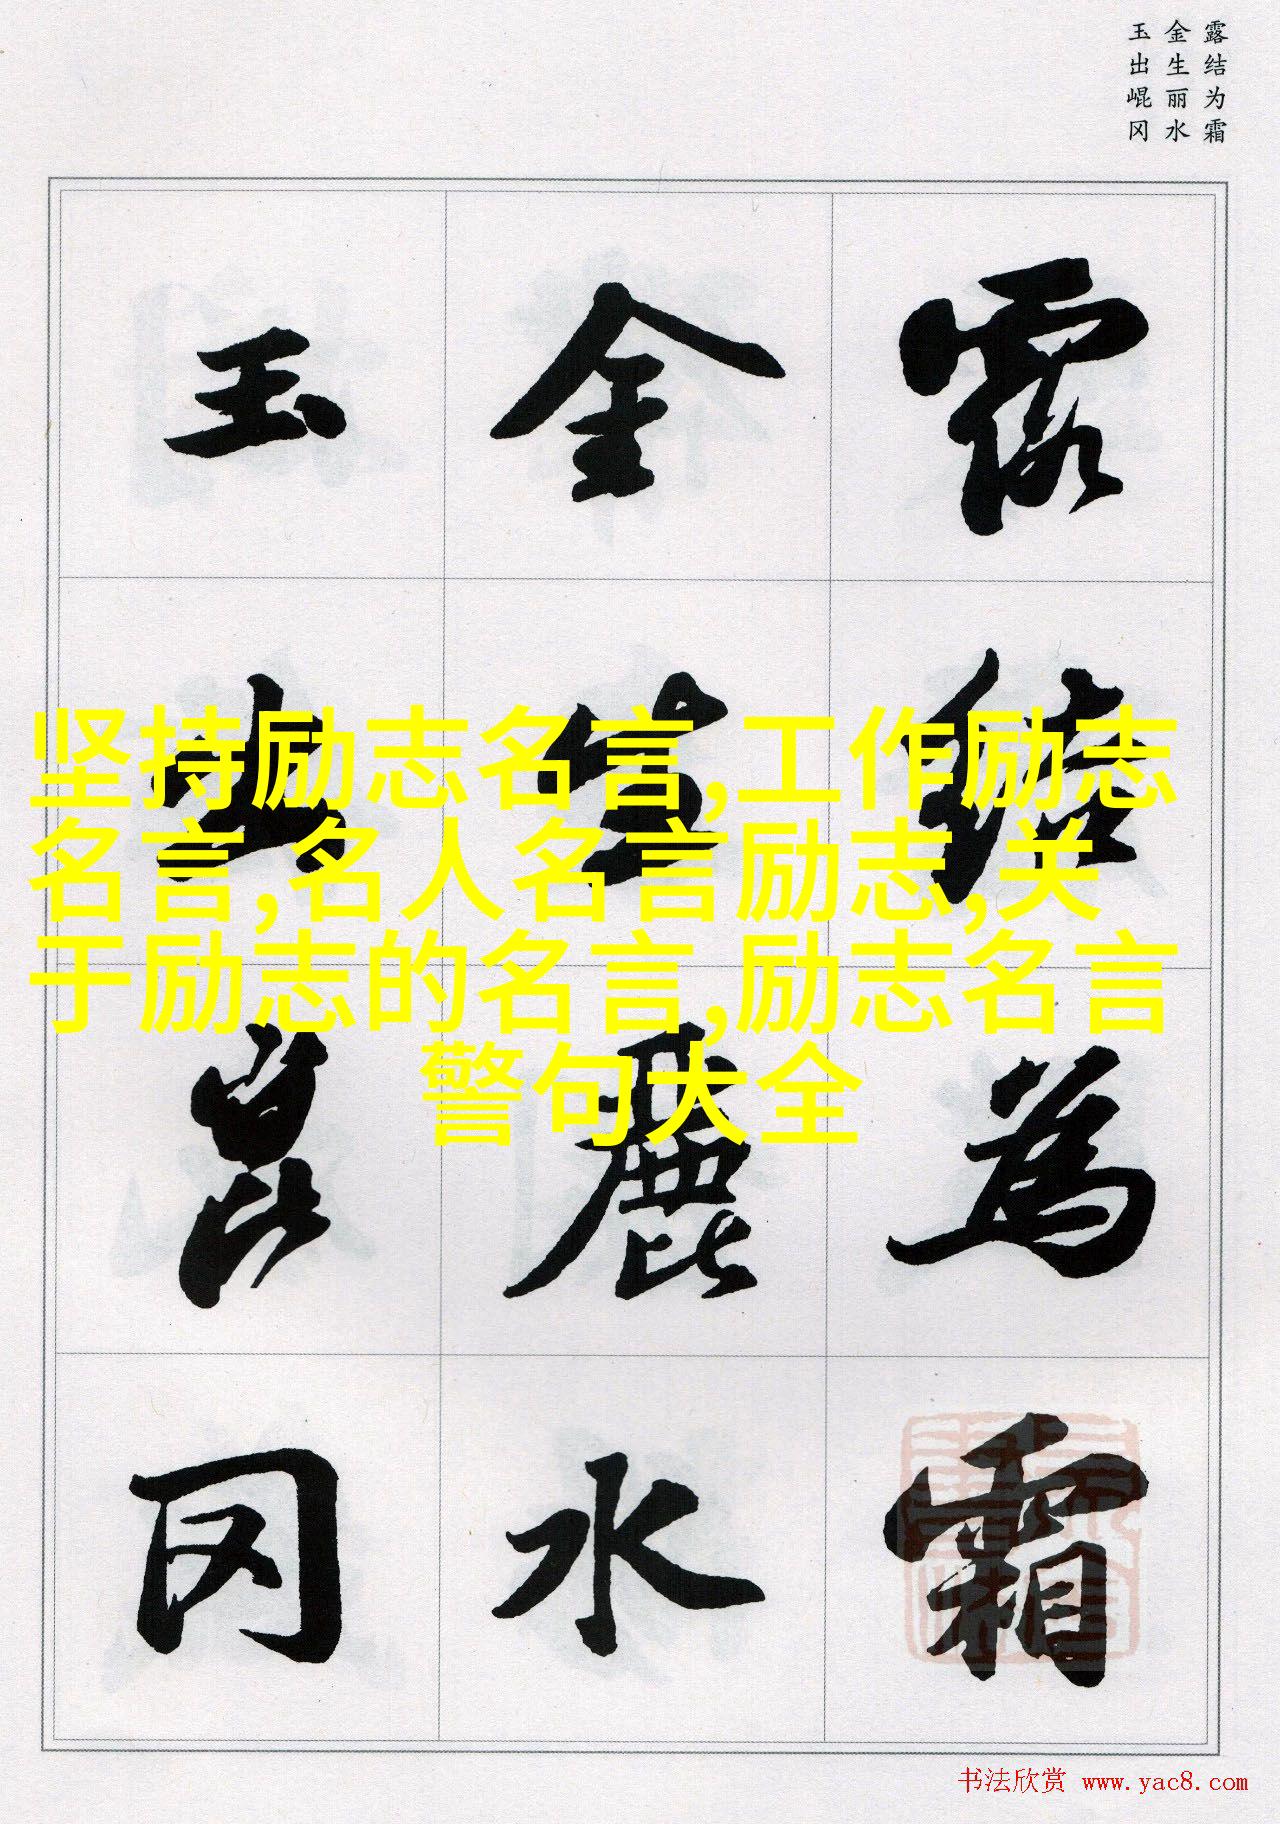 露结为霜
金生丽水
玉出崐冈
露结為霜
金生麗水
玉出崑冈
坚持励志名言,工作励志
名言,名人名言励志,关
于励志的名言,励志名言
警句大全
书法欣赏 www.yac8.com